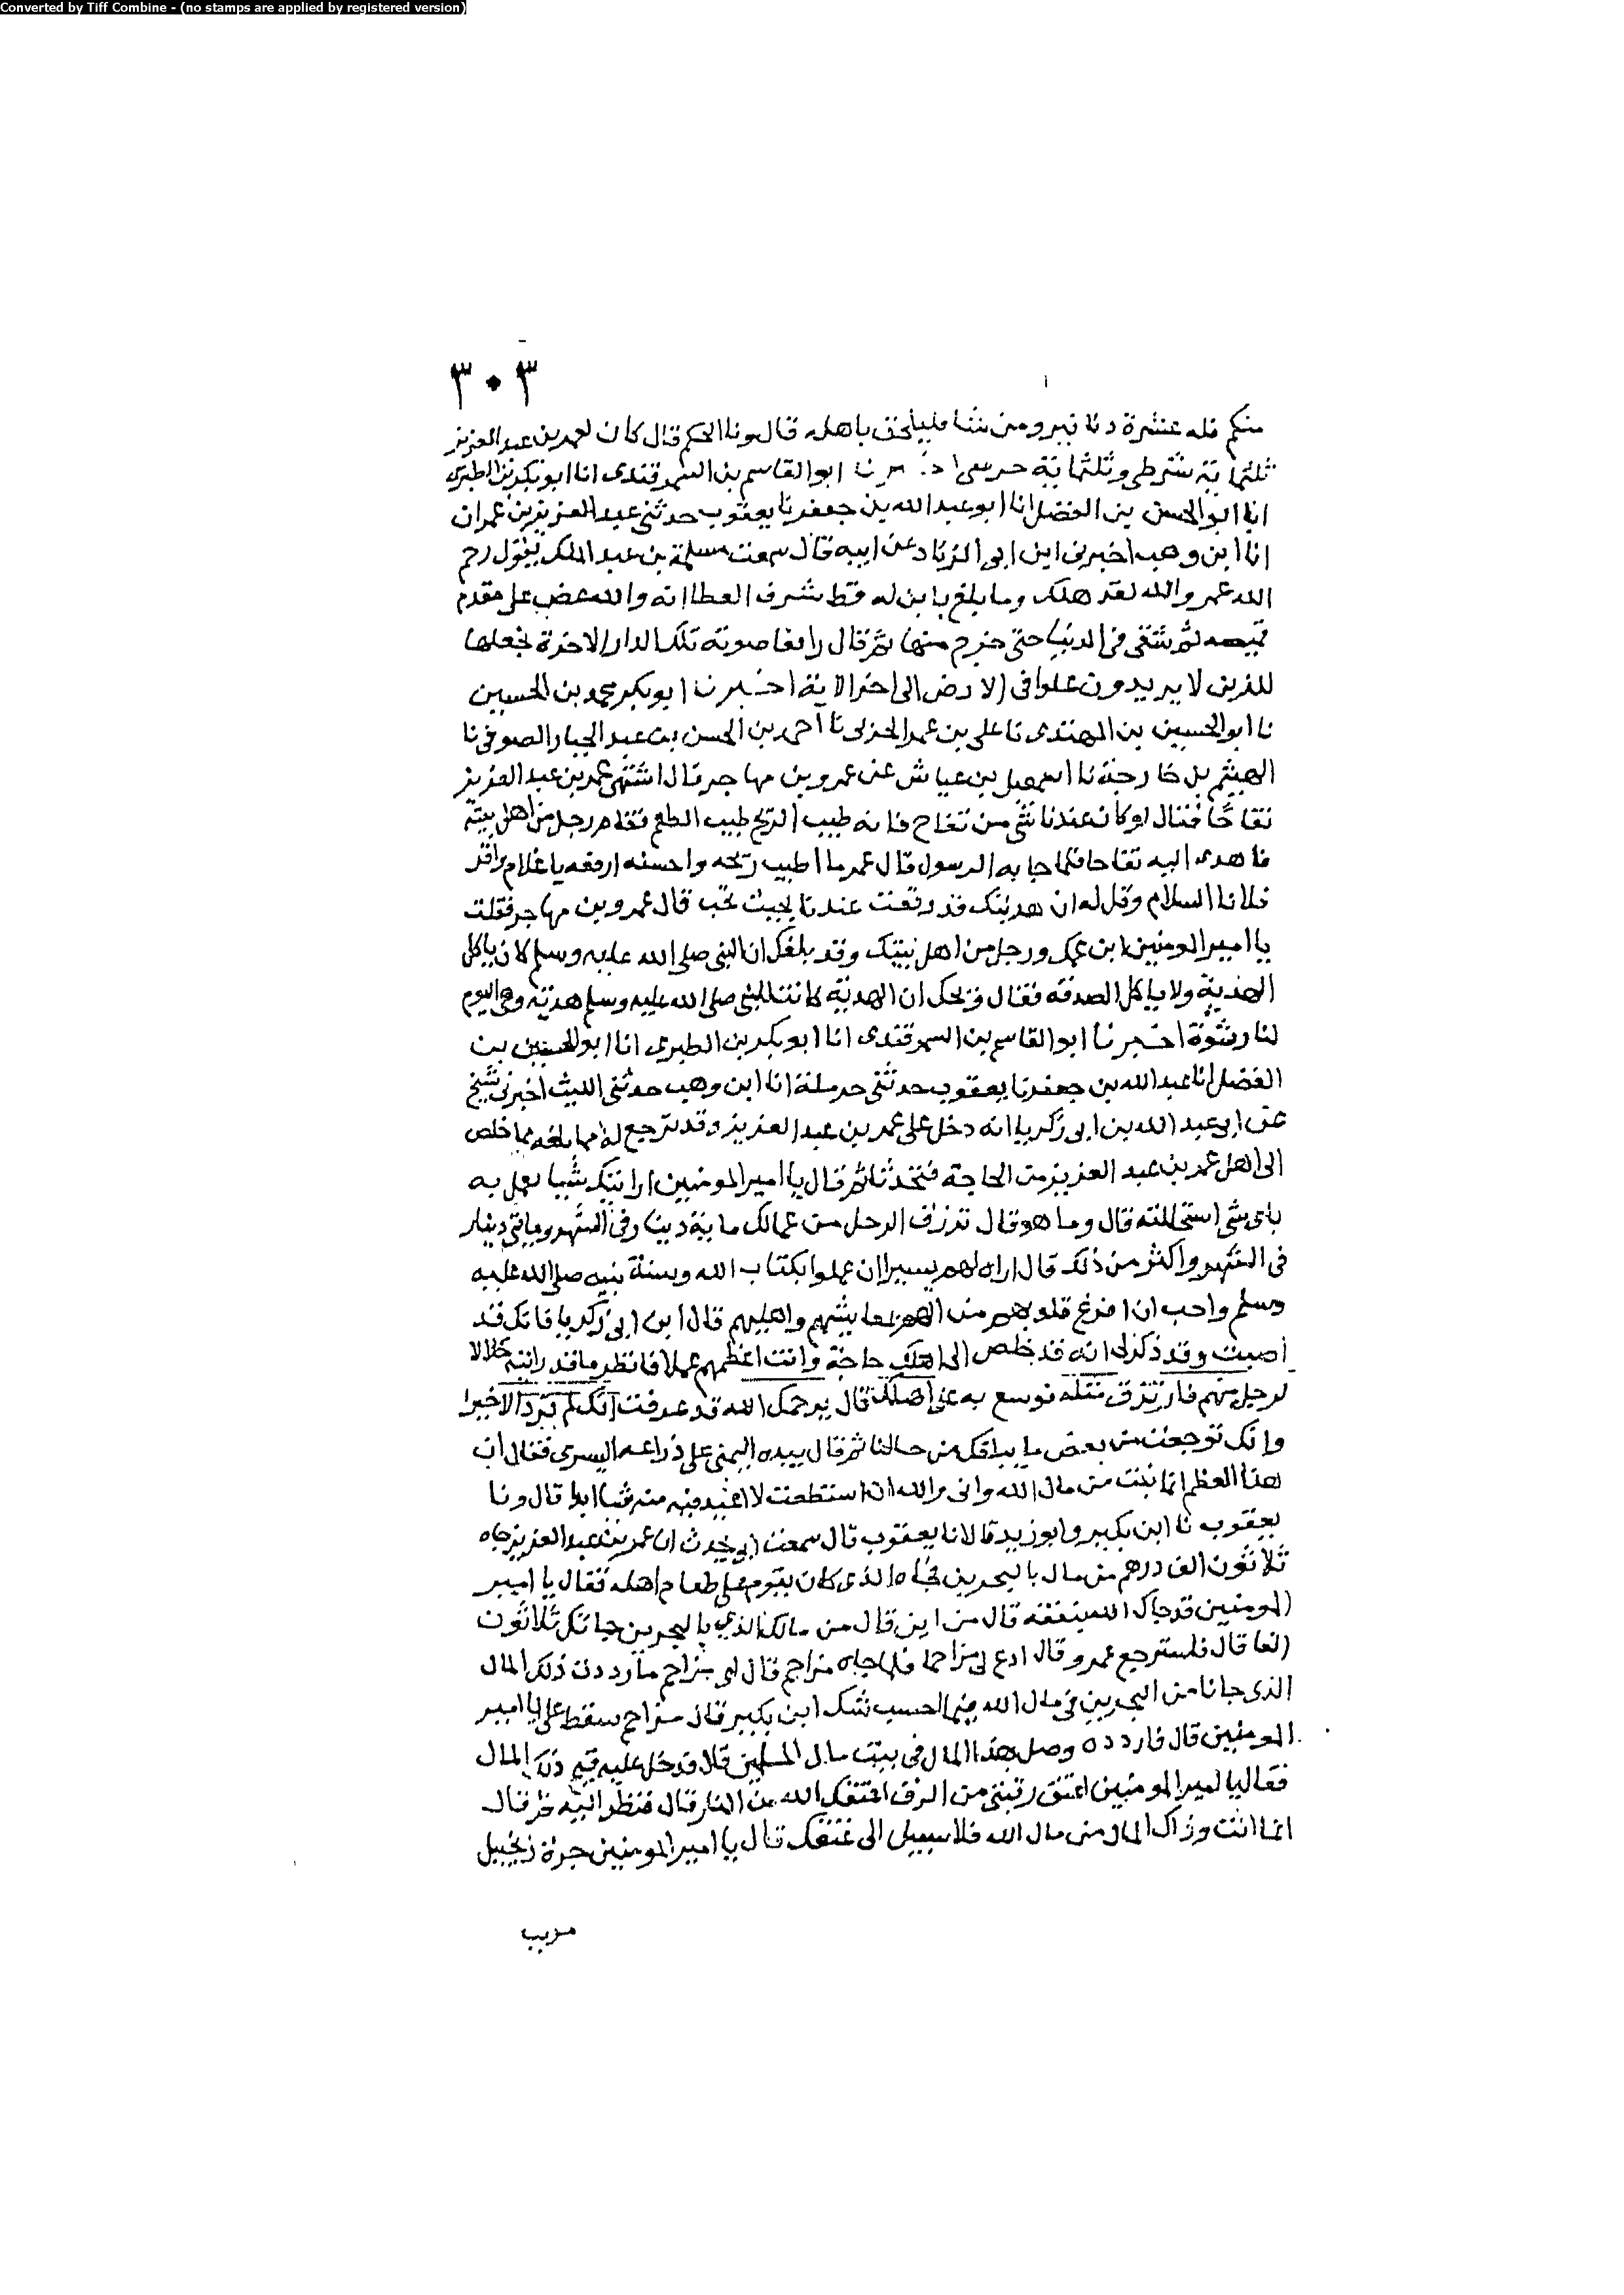 Converted by Tiff Combine - (no stamps are applied by registered version)
٣٠٣
منكم فله عشرة دنانير ومن شا فليلحق باهله قال ونا الحكم قال كان لعمر بن عبد العزيز
ثلثماية شرطي وثلثماية حرسي ابو القاسم بن السمرقندي انا ابو بكر بن الطبري
انا ابو الحسن بن الفضل انا ابو عبد الله بن جعفر نا يعقوب حدثني عبد العزيز بن عمران
انا ابن وهب اخبرني ابن ابي الزناد عن ابيه قال سمعت مسلمة بن عبد الملك يقول رحم
الله عمر والله لقد هلك وما بلغ بابن له قط شرف العطا انه والله غض على مقدم
قميصه ثم شقى في الدنيا حتى خرج منها ثم قال رافعا صوته تلك الدار الاخرة نجعلها
للذين لا يريدون علوا في الارض الى اخر الاية اخبرنا ابو بكر محمد بن الحسين
نا ابو الحسين بن المهتدى نا علي بن عمر الحربي نا احمد بن الحسن بن عبد الجبار الصوفي نا
الهيثم بن خارجة نا اسمعيل بن عياش عن عمرو بن مهاجر قال اشتهى عمر بن عبد العزيز
تفاحا فقال لو كان عندنا شي من تفاح فانه طيب الريح طيب الطعم فقام رجل من اهل بيته
فاهدى اليه تفاحا فلما جا به الرسول قال عمر ما اطيب ريحه واحسنه ارفعه يا غلام واقر
فلانا السلام وقل له ان هديتك قد وقعت عندنا بحيث تحب قال عمرو بن مهاجر فقلت
يا امير المومنين ابن عمك ورجل من اهل بيتك وقد بلغك ان النبي صلى الله عليه وسلم كان ياكل
الهدية ولا ياكل الصدقه فقال ويحك ان الهدية كانت للنبي صلى الله عليه وسلم هدية وهي اليوم
لنا رشوة اخبرنا ابو القاسم بن السمرقندى انا ابو بكر بن الطبرى انا ابو الحسين بن
الفضل انا عبد الله بن جعفر نا يعقوب حدثني حرملة انا ابن وهب حدثني الليث اخبرني شيخ
عن ابي عبد الله بن ابي زكريا انه دخل على عمر بن عبد العزيز وقد توجع له مما بلغه مما خلص
الى اهل عمر بن عبد العزيز من الحاجة فتحدثا ثم قال يا امير المومنين ارايتك شيا تعمل به
باي شي استحللته قال وما هو قال ترزق الرجل من عمالك ماية دينار في الشهر ومايتي دينار
في الشهر واكثر من ذلك قال اراه لهم يسيرا ان عملوا بكتاب الله وسنة نبيه صلى الله عليه
وسلم واحب ان افرغ قلوبهم من الهم بمعايشهم واهليهم قال ابن ابي زكريا فانك قد
اصبت وقد ذكر لي انه قد خلص الى اهلك حاجة وانت اعظمهم عملا فانظر ما قد رايته حلالا
لرجل منهم فارتزق مثله فوسع به على اهلك قال يرحمك الله قد عرفت انك لم ترد الا خيرا
وانك توجعت من بعض ما يبلغك من حالنا ثم قال بيده اليمنى على ذراعه اليسرى فقال ان
هذا العظم انما نبت من مال الله واني والله ان استطعت لا اعيد فيه منه شيا ابدا قال ونا
يعقوب نا ابن بكير وابو زيد قالا نا يعقوب قال سمعت ابي يحدث ان عمر بن عبد العزيز جاه
ثلاثون الف درهم من مال بالبحرين فجاه الذى كان يقوم على طعام اهله فقال يا امير
المومنين قد جاك الله بنفقة قال من اين قال من مالك الذي بالبحرين جاتك ثلاثون
الفا قال فاسترجع عمر وقال ادع لي مزاحما فلما جاه مزاحم قال اى مزاحم ما رددت ذلك المال
الذى جانا من البحرين في مال الله فيما احسب شك ابن بكير قال مزاحم سقط علي يا امير
المومنين قال فاردده وصل بهذا المال في بيت مال المسلمين قال فدخل عليه قيم ذلك المال
فقال يا امير المومنين اعتق رقبتي من الرق اعتقك الله من النار قال فنظر اليه ثم قال
انما انت وذاك المال من مال الله فلا سبيل الى عتقك قال يا امير المومنين جرة زنجبيل
مربب